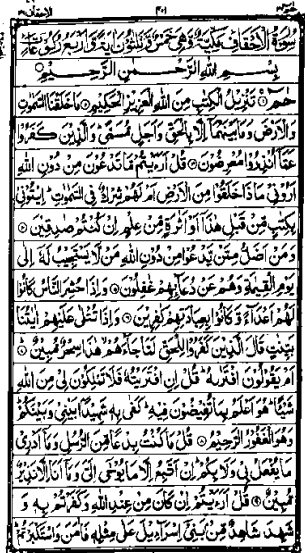 سُوْرَةُ الْاَحْقَافِ مَكِّيَّةٌ وَّهِيَ خَمْسٌ وَّثَلٰثُوْنَ اٰيَةً وَّاَرْبَعُ رُكُوْعَاتٍ
بِسْمِ اللّٰهِ الرَّحْمٰنِ الرَّحِيْمِ
حٰمٓ ۝ تَنْزِيْلُ الْكِتٰبِ مِنَ اللّٰهِ الْعَزِيْزِ الْحَكِيْمِ ۝ مَا خَلَقْنَا السَّمٰوٰتِ
وَالْاَرْضَ وَمَا بَيْنَهُمَآ اِلَّا بِالْحَقِّ وَاَجَلٍ مُّسَمًّى ۭ وَالَّذِيْنَ كَفَرُوْا
عَمَّآ اُنْذِرُوْا مُعْرِضُوْنَ ۝ قُلْ اَرَءَيْتُمْ مَّا تَدْعُوْنَ مِنْ دُوْنِ اللّٰهِ
اَرُوْنِيْ مَاذَا خَلَقُوْا مِنَ الْاَرْضِ اَمْ لَهُمْ شِرْكٌ فِي السَّمٰوٰتِ ۭ اِيْتُوْنِيْ
بِكِتٰبٍ مِّنْ قَبْلِ هٰذَآ اَوْ اَثٰرَةٍ مِّنْ عِلْمٍ اِنْ كُنْتُمْ صٰدِقِيْنَ ۝
وَمَنْ اَضَلُّ مِمَّنْ يَّدْعُوْا مِنْ دُوْنِ اللّٰهِ مَنْ لَّا يَسْتَجِيْبُ لَهٗٓ اِلٰى
يَوْمِ الْقِيٰمَةِ وَهُمْ عَنْ دُعَآئِهِمْ غٰفِلُوْنَ ۝ وَاِذَا حُشِرَ النَّاسُ كَانُوْا
لَهُمْ اَعْدَآءً وَّكَانُوْا بِعِبَادَتِهِمْ كٰفِرِيْنَ ۝ وَاِذَا تُتْلٰى عَلَيْهِمْ اٰيٰتُنَا
بَيِّنٰتٍ قَالَ الَّذِيْنَ كَفَرُوْا لِلْحَقِّ لَمَّا جَآءَهُمْ هٰذَا سِحْرٌ مُّبِيْنٌ ۝
اَمْ يَقُوْلُوْنَ افْتَرٰىهُ ۭ قُلْ اِنِ افْتَرَيْتُهٗ فَلَا تَمْلِكُوْنَ لِيْ مِنَ اللّٰهِ
شَيْئًا ۭ هُوَ اَعْلَمُ بِمَا تُفِيْضُوْنَ فِيْهِ ۭ كَفٰى بِهٖ شَهِيْدًۢا بَيْنِيْ وَبَيْنَكُمْ
وَهُوَ الْغَفُوْرُ الرَّحِيْمُ ۝ قُلْ مَا كُنْتُ بِدْعًا مِّنَ الرُّسُلِ وَمَآ اَدْرِيْ
مَا يُفْعَلُ بِيْ وَلَا بِكُمْ ۭ اِنْ اَتَّبِعُ اِلَّا مَا يُوْحٰٓى اِلَيَّ وَمَآ اَنَا اِلَّا نَذِيْرٌ
مُّبِيْنٌ ۝ قُلْ اَرَءَيْتُمْ اِنْ كَانَ مِنْ عِنْدِ اللّٰهِ وَكَفَرْتُمْ بِهٖ وَ
شَهِدَ شَاهِدٌ مِّنْۢ بَنِيْٓ اِسْرَآءِيْلَ عَلٰى مِثْلِهٖ فَاٰمَنَ وَاسْتَكْبَرْتُمْ